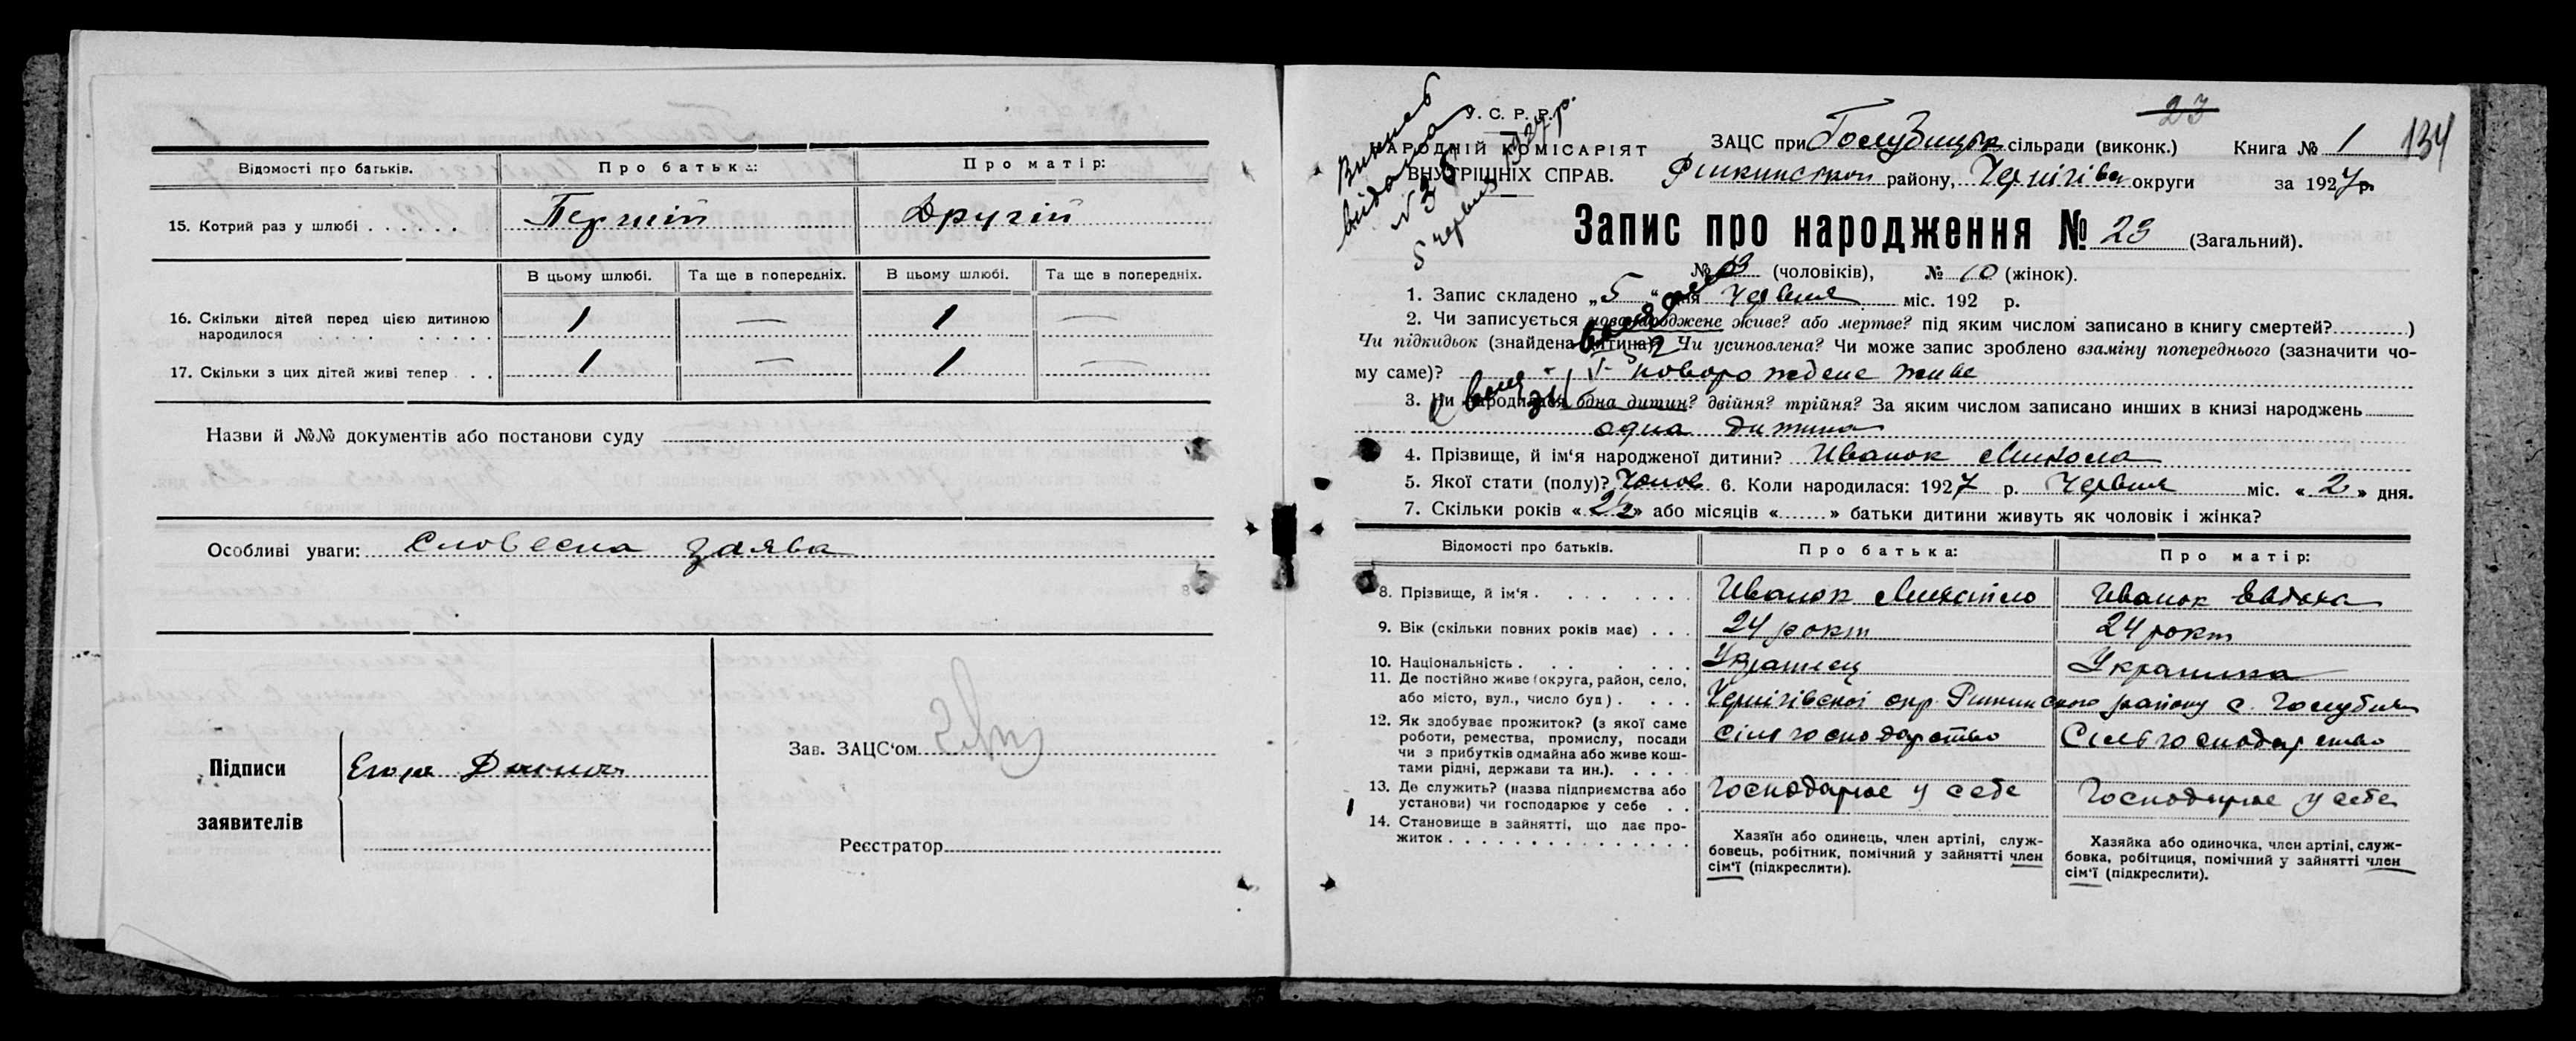 Відомості про батьків. Про батька: Про матір:
15. Котрий раз у шлюбі . . . . . . Перший Другій
В цьому шлюбі. Та ще в попередніх. В цьому шлюбі. Та ще в попередніх.
16. Скільки дітей перед цією дитиною
народилося . . . . . . . . . 1 — 1 —
17. Скільки з цих дітей живі тепер . . . 1 — 1 —
Назви й №№ документів або постанови суду
Особливі уваги: Словесна заява
Підписи
заявителів
Зав. ЗАЦС'ом
Реєстратор
У. С. Р. Р.
НАРОДНІЙ КОМІСАРІЯТ
ВНУТРІШНІХ СПРАВ.
5 червня 1927 р.
23
ЗАЦС при Голубицьк сільради (виконк.) Книга № 1 134
району, Чернігівс округи за 1927 р.
Запис про народження № 23 (Загальний).
№ 13 (чоловіків), № 10 (жінок).
1. Запис складено „5" дня Червня міс. 192 р.
2. Чи записується новонароджене живе? або мертве? під яким числом записано в книгу смертей? )
Чи підкидьок (знайдена дитина)? Чи усиновлена? Чи може запис зроблено взаміну попереднього (зазначити чо-
му саме)? новорождене живе
3. Чи народилася одна дитин? двійня? трійня? За яким числом записано инших в книзі народжень
одна дитина
4. Прізвище, й ім'я народженої дитини? Иванок Микола
5. Якої стати (полу)? Чолов 6. Коли народилася: 1927 р. Червня міс. « 2 » дня.
7. Скільки років « 2½ » або місяців « » батьки дитини живуть як чоловік і жінка?
Відомості про батьків. Про батька: Про матір:
8. Прізвище, й ім'я . . . . . . . . Иванок Иванок Евдока
9. Вік (скільки повних років має) . . . 24 рокт 24 рокт
10. Національність . . . . . . . Українец Украинка
11. Де постійно живе (округа, район, село,
або місто, вул., число буд) . . . . Чернігівської окр. району с. Голубичи
12. Як здобуває прожиток? (з якої саме
роботи, ремества, промислу, посади
чи з прибутків одмайна або живе кош-
тами рідні, держави та ин.). . . . . Сільгосподарство Сільгосподарство
13. Де служить? (назва підприємства або
установи) чи господарює у себе . . Господарює у себе Господарює у себе
14. Становище в зайнятті, що дає про-
житок . . . . . . . . . . . . . . .
Хазяїн або одинець, член артілі, служ-
бовець, робітник, помічний у зайнятті член
сім'ї (підкреслити).
Хазяйка або одиночка, член артілі, служ-
бовка, робітциця, помічний у зайнятті член
сім'ї (підкреслити).